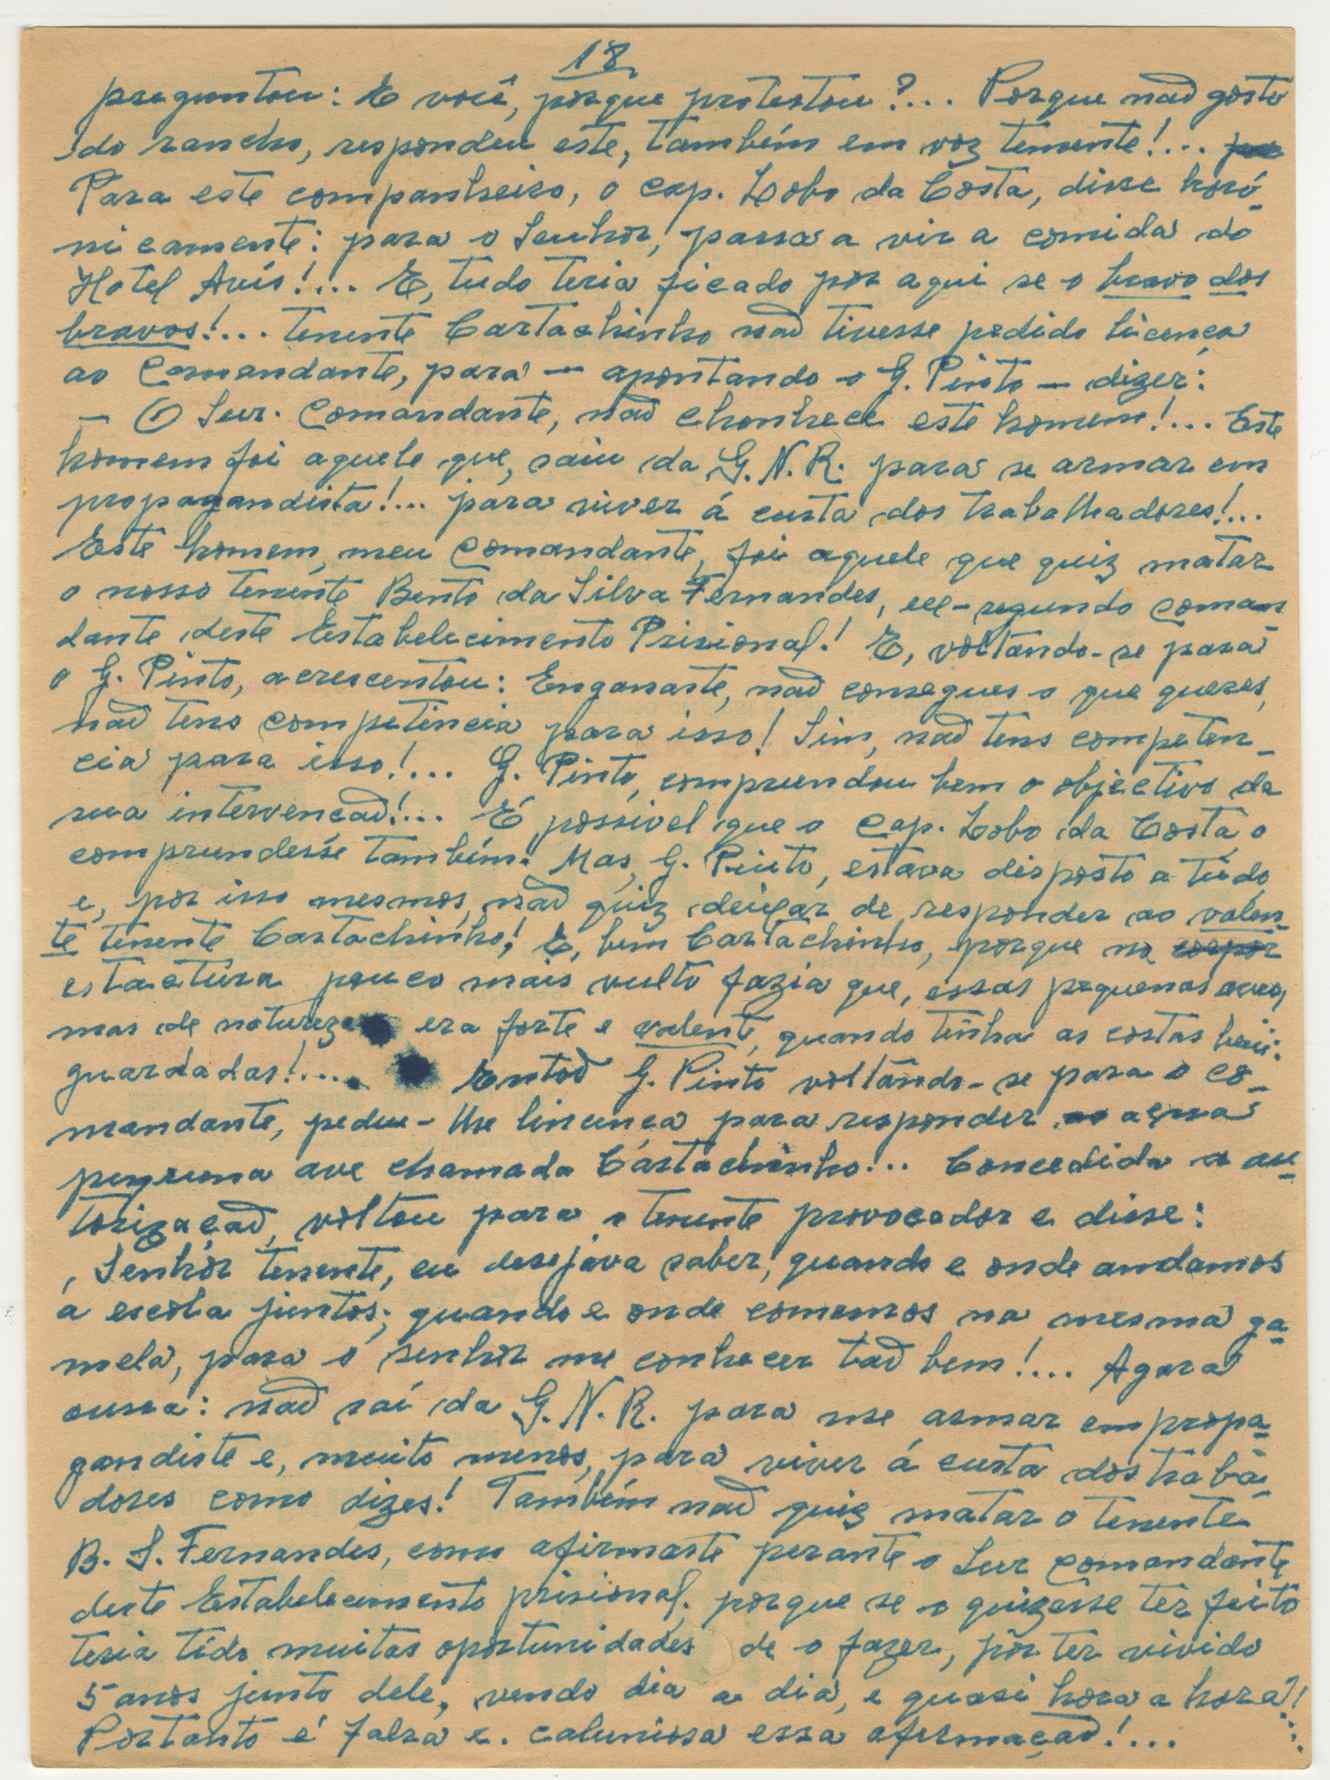 18
preguntou: E você, porque protestou?... Porque não gosto
do rancho, respondeu este, também em voz temente!...
Para este companheiro, o cap. Lobo da Costa, disse horó-
nicamente: para o Senhor, passa a vir a comida do
Hotel Avís!... E, tudo teria ficado por aqui se o bravo dos
bravos!... tenente Cartachinho não tivesse pedido licença
ao Comandante, para — apontando o G. Pinto — dizer:
— O Snr. Comandante, não chonhece este homem!... Este
homem foi aquele que, saiu da G.N.R. para se armar em
propagandista!... para viver á custa dos trabalhadores!...
Este homem, meu Comandante, foi aquele que quiz matar
o nosso tenente Bento da Silva Fernandes, ex-segundo coman-
dante deste Estabelecimento Prisional! E, voltando-se para
o G. Pinto, acrescentou: Enganaste, não consegues o que queres,
não tens competência para isso! Sim, não tens competen-
cia para isso!... G. Pinto, comprendeu bem o objectivo da
sua intervenção!... É possivel que o Cap. Lobo da Costa, o
comprendesse também. Mas, G. Pinto, estava disposto a tudo
e, por isso mesmos, não quiz deixar de responder ao valen-
te tenente Cartachinho! E, bem Cartachinho, porque na corpor
estactura pouco mais vulto fazia que, essas pequenas aves,
mas de natureza era forte e valente, quando tinha as costas bem
guardadas!.... Entoã G. Pinto voltando-se para o co-
mandante, pediu-lhe lincença para responder ao aquâ
pequena ave chamada Cartachinho... Concedida a au-
torização, voltou para o tenente provocador e disse:
Senhor tenente, eu desejava saber, quando e onde andamos
á escola juntos; quando e onde comemos na mesma ga-
mela, para o senhor me conhecer tão bem!.... Agora
oussa: não saí da G.N.R. para me armar em propa-
gandista e, muito menos, para viver á custa dos traba-
dores como dizes! Também não quiz matar o tenente
B. S. Fernandes, como afirmaste perante o Snr Comandante
deste Estabelecimento prisional, porque se o quizesse ter feito
teria tido muitas oportunidades de o fazer, por ter vivido
5 anos junto dele, vendo dia a dia, e quasi hora a hora!...
Portanto é falsa e caluniosa essa afirmação!...